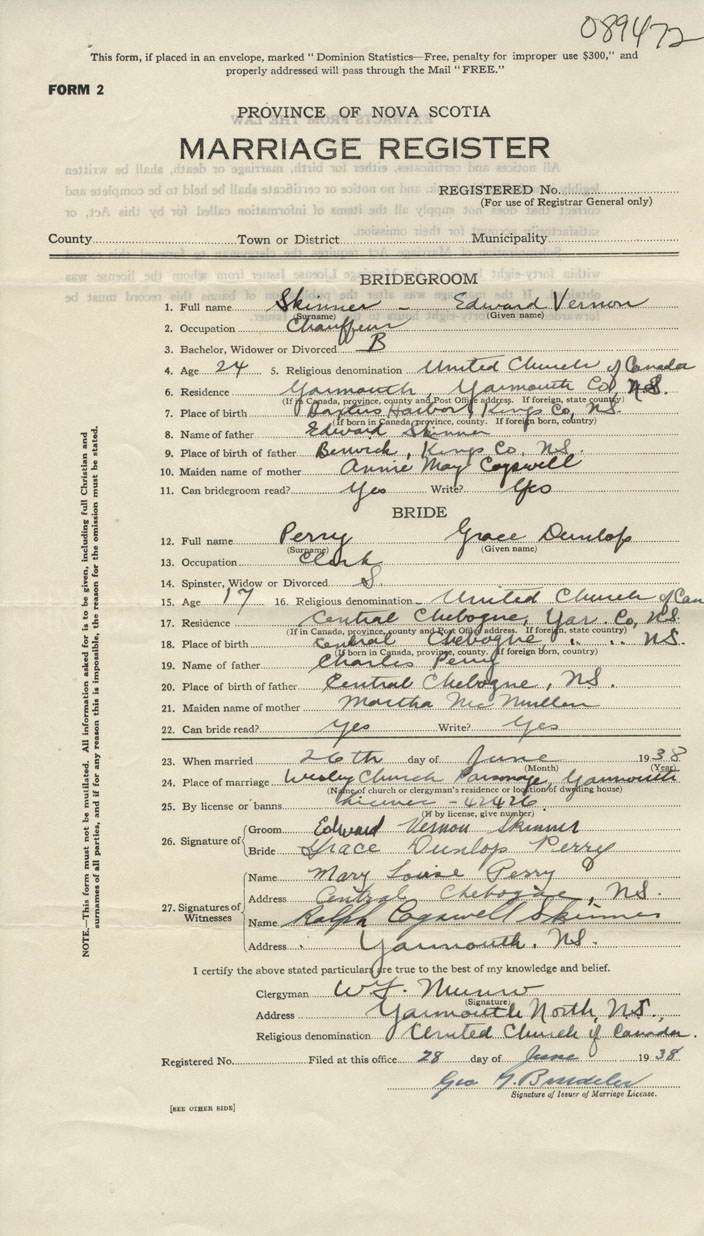 089472
This form, if placed in an envelope, marked "Dominion Statistics—Free, penalty for improper use $300," and
properly addressed will pass through the Mail "FREE."
FORM 2
PROVINCE OF NOVA SCOTIA
MARRIAGE REGISTER
REGISTERED No.
(For use of Registrar General only)
County Town or District Municipality
BRIDEGROOM
1. Full name Skinner - Edward Vernon
(Surname) (Given name)
2. Occupation Chauffeur
3. Bachelor, Widower or Divorced B
4. Age 24 5. Religious denomination United Church of Canada
6. Residence Yarmouth, Yarmouth Co, N.S.
(If in Canada, province, county and Post Office address. If foreign, state country)
7. Place of birth Baxters Harbor, Kings Co, NS.
(If born in Canada, province, county. If foreign born, country)
8. Name of father Edward Skinner
9. Place of birth of father Berwick, Kings Co. NS.
10. Maiden name of mother Annie May Cogswell
11. Can bridegroom read? Yes Write? Yes
BRIDE
12. Full name Perry Grace Dunlop
(Surname) (Given name)
13. Occupation Clerk
14. Spinster, Widow or Divorced S.
15. Age 17 16. Religious denomination United Church of Can
17. Residence Central Chebogne, Yar. Co, NS.
(If in Canada, province, county and Post Office address. If foreign, state country)
18. Place of birth Central Chebogne, " " NS.
(If born in Canada, province, county. If foreign born, country)
19. Name of father Charles Perry
20. Place of birth of father Central Chebogne, NS.
21. Maiden name of mother Martha McMullen
22. Can bride read? Yes Write? Yes
23. When married 26th day of June 1938
(Month) (Year)
24. Place of marriage Wesley Church Parsonage, Yarmouth
(Name of church or clergyman's residence or location of dwelling house)
25. By license or banns license - 42426
(If by license, give number)
26. Signature of Groom Edward Vernon Skinner
Bride Grace Dunlop Perry
27. Signatures of Witnesses
Name Mary Louise Perry
Address Central Chebogne, NS.
Name Ralph Cogswell Skinner
Address Yarmouth, NS.
I certify the above stated particulars are true to the best of my knowledge and belief.
Clergyman W. J. Munro
(Signature)
Address Yarmouth North, NS.
Religious denomination United Church of Canada.
Registered No. Filed at this office 28 day of June 1938
Geo G.
Signature of Issuer of Marriage License.
[SEE OTHER SIDE]
NOTE.—This form must not be mutilated. All information asked for is to be given, including full Christian and
surnames of all parties, and if for any reason this is impossible, the reason for the omission must be stated.